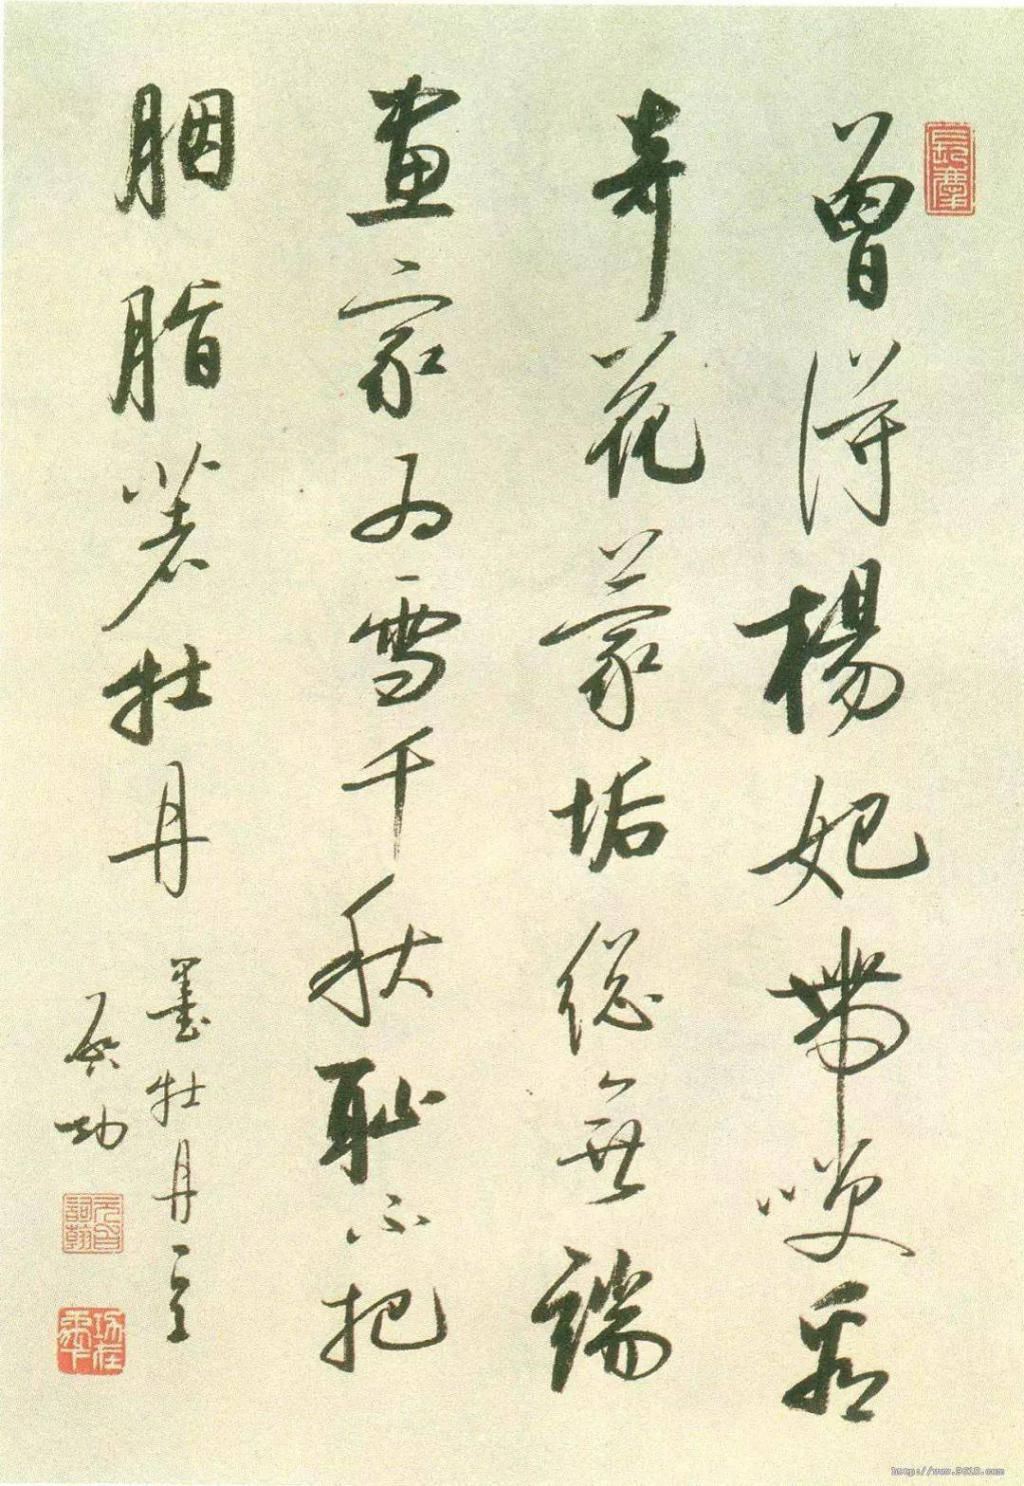 曾得楊妃帶笑看
奇花蒙垢總無端
畫家為雪千秋恥不把
胭脂著牡丹
墨牡丹一首
啟功
http://www.9610.com